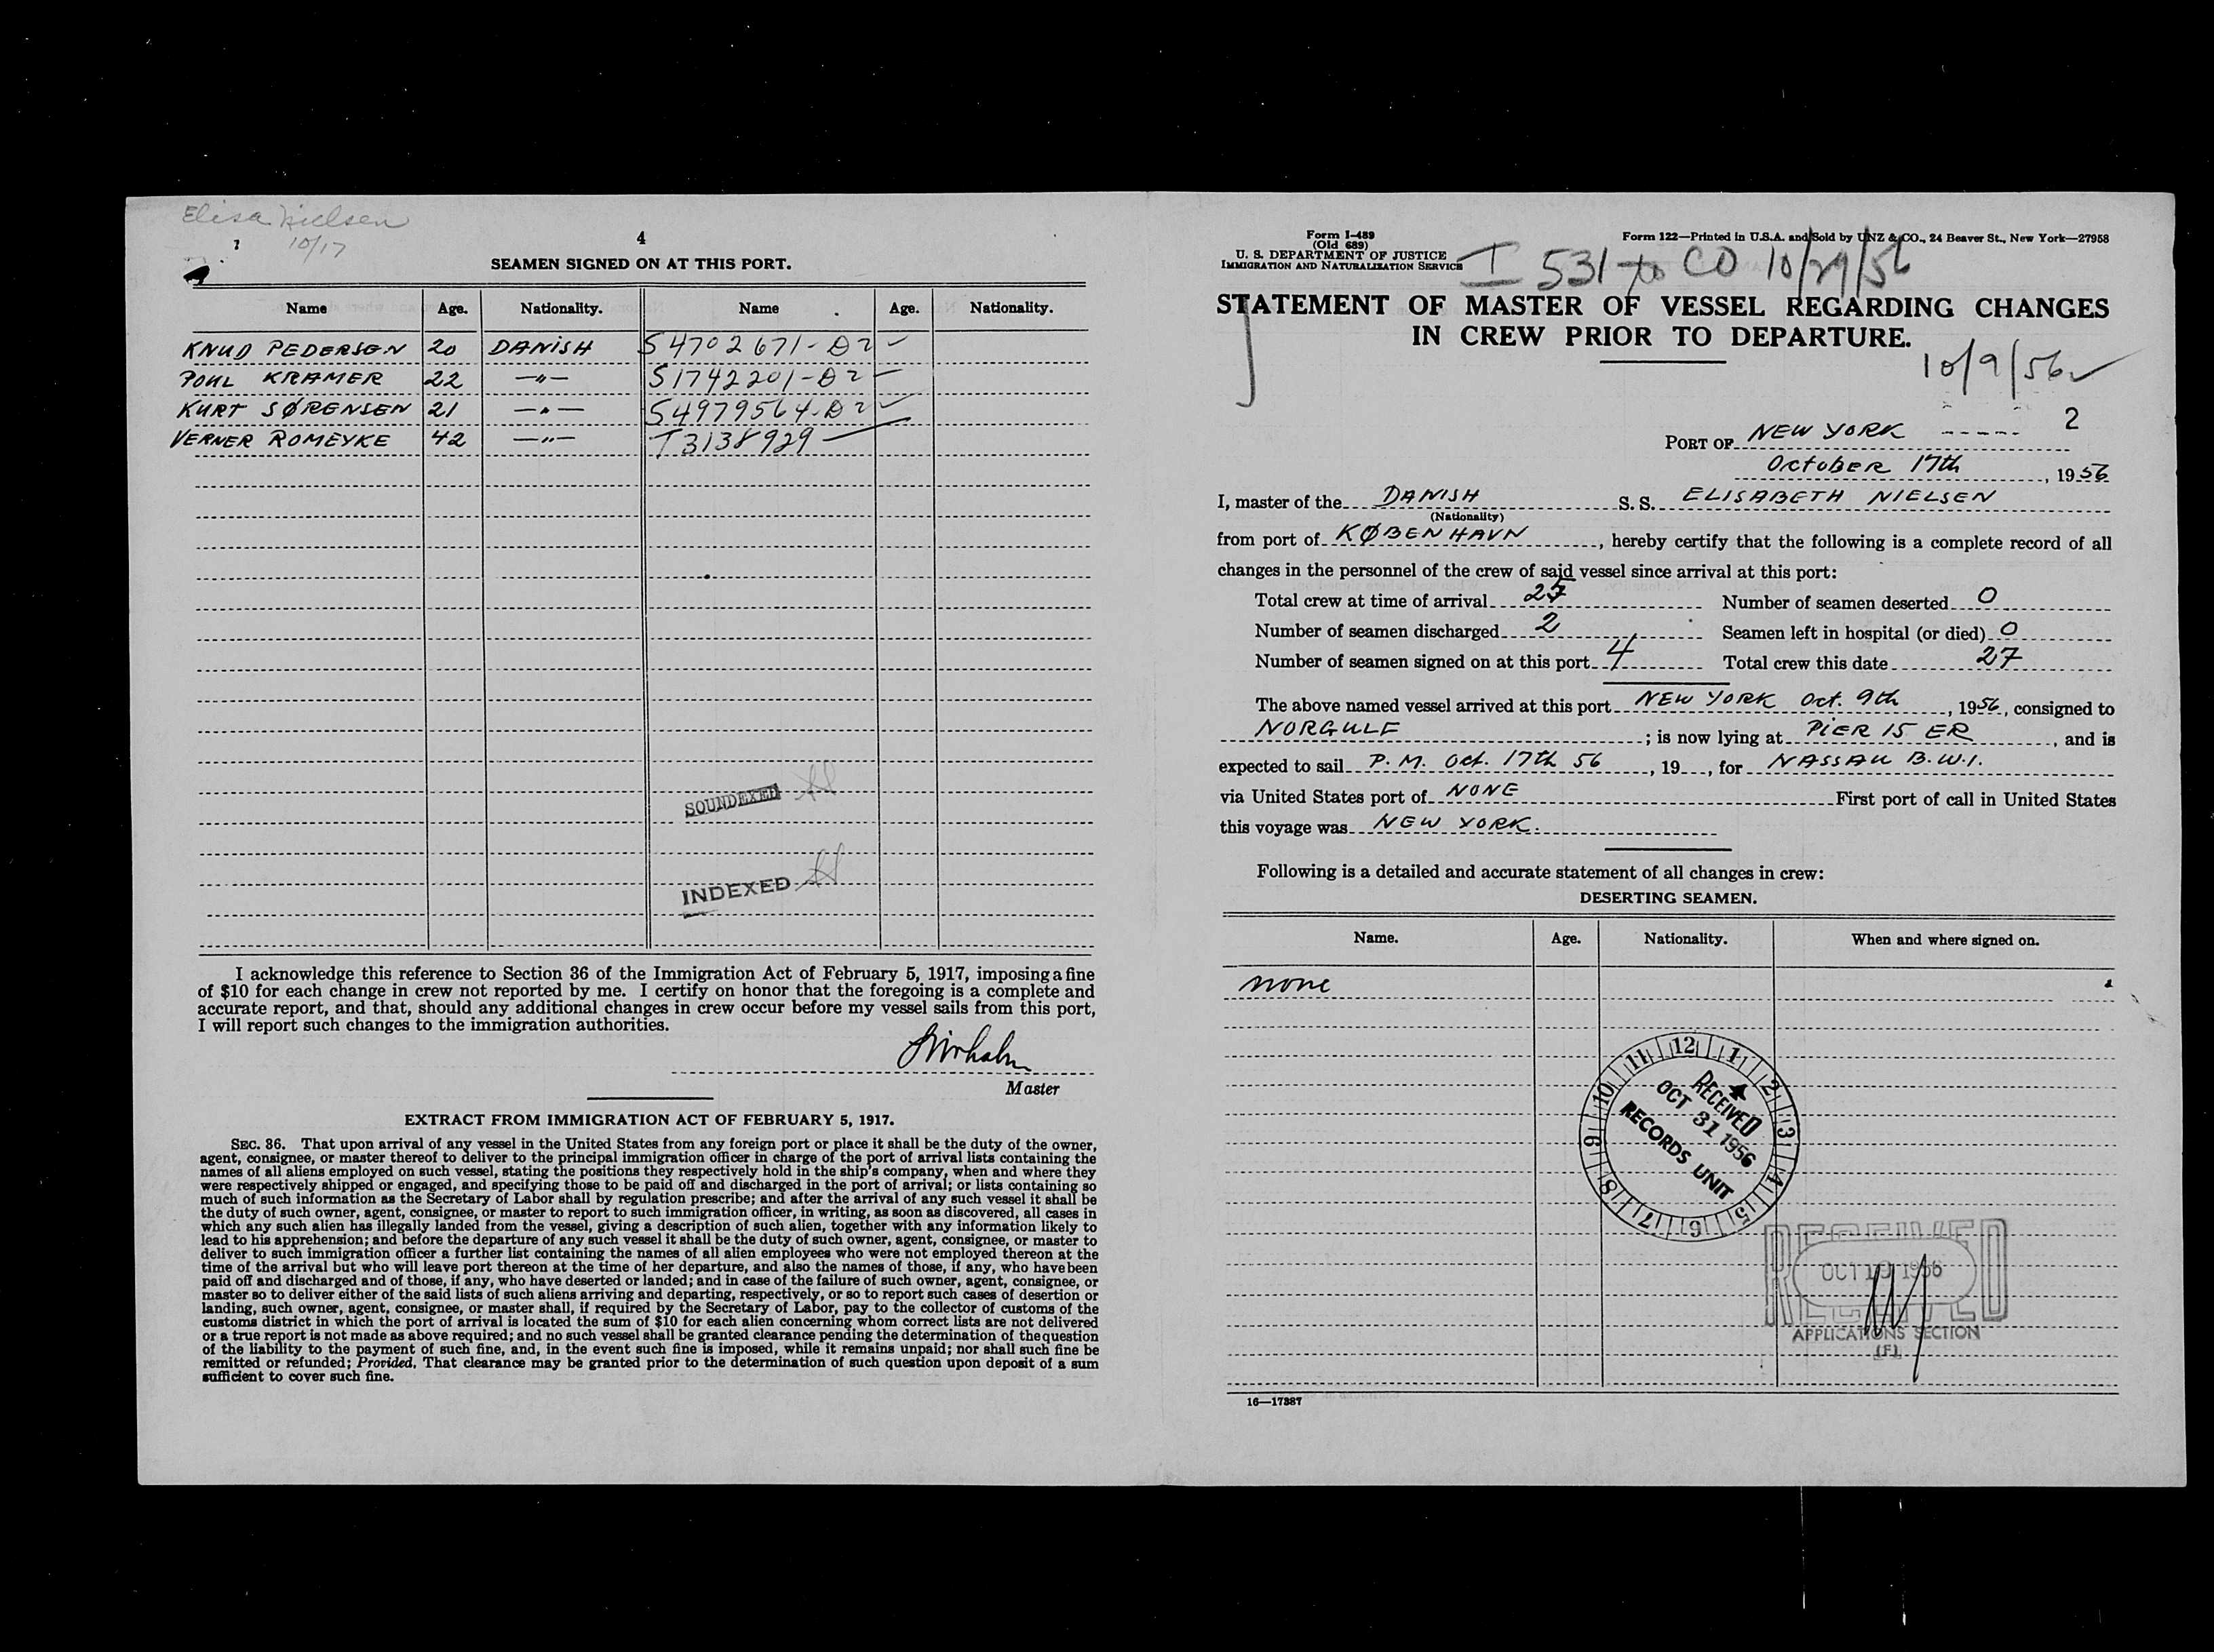 Elisa Nielsen
10/17
4
SEAMEN SIGNED ON AT THIS PORT.
Name Age. Nationality. Name Age. Nationality.
KNUD PEDERSEN 20 DANISH S4702671-D2 ✓
POUL KRAMER 22 —"— S1742201-D2
KURT SØRENSEN 21 —"— S4979564-D2 ✓
VERNER ROMEYKE 42 —"— T3138929
SOUNDEXED
INDEXED
I acknowledge this reference to Section 36 of the Immigration Act of February 5, 1917, imposing a fine
of $10 for each change in crew not reported by me. I certify on honor that the foregoing is a complete and
accurate report, and that, should any additional changes in crew occur before my vessel sails from this port,
I will report such changes to the immigration authorities.
Master
EXTRACT FROM IMMIGRATION ACT OF FEBRUARY 5, 1917.
SEC. 36. That upon arrival of any vessel in the United States from any foreign port or place it shall be the duty of the owner,
agent, consignee, or master thereof to deliver to the principal immigration officer in charge of the port of arrival lists containing the
names of all aliens employed on such vessel, stating the positions they respectively hold in the ship's company, when and where they
were respectively shipped or engaged, and specifying those to be paid off and discharged in the port of arrival; or lists containing so
much of such information as the Secretary of Labor shall by regulation prescribe; and after the arrival of any such vessel it shall be
the duty of such owner, agent, consignee, or master to report to such immigration officer, in writing, as soon as discovered, all cases in
which any such alien has illegally landed from the vessel, giving a description of such alien, together with any information likely to
lead to his apprehension; and before the departure of any such vessel it shall be the duty of such owner, agent, consignee, or master to
deliver to such immigration officer a further list containing the names of all alien employees who were not employed thereon at the
time of the arrival but who will leave port thereon at the time of her departure, and also the names of those, if any, who have been
paid off and discharged and of those, if any, who have deserted or landed; and in case of the failure of such owner, agent, consignee, or
master so to deliver either of the said lists of such aliens arriving and departing, respectively, or so to report such cases of desertion or
landing, such owner, agent, consignee, or master shall, if required by the Secretary of Labor, pay to the collector of customs of the
customs district in which the port of arrival is located the sum of $10 for each alien concerning whom correct lists are not delivered
or a true report is not made as above required; and no such vessel shall be granted clearance pending the determination of the question
of the liability to the payment of such fine, and, in the event such fine is imposed, while it remains unpaid; nor shall such fine be
remitted or refunded; Provided, That clearance may be granted prior to the determination of such question upon deposit of a sum
sufficient to cover such fine.
Form I-489
(Old 689)
U. S. DEPARTMENT OF JUSTICE
IMMIGRATION AND NATURALIZATION SERVICE
Form 122—Printed in U.S.A. and Sold by UNZ & CO., 24 Beaver St., New York—27958
I 531 to CO 10/29/56
STATEMENT OF MASTER OF VESSEL REGARDING CHANGES
IN CREW PRIOR TO DEPARTURE.
10/9/56 ✓
2
PORT OF NEW YORK
OCTOBER 17th, 1956
I, master of the DANISH S. S. ELISABETH NIELSEN
(Nationality)
from port of KØBENHAVN, hereby certify that the following is a complete record of all
changes in the personnel of the crew of said vessel since arrival at this port:
Total crew at time of arrival 25 Number of seamen deserted 0
Number of seamen discharged 2 Seamen left in hospital (or died) 0
Number of seamen signed on at this port 4 Total crew this date 27
The above named vessel arrived at this port NEW YORK Oct. 9th, 1956, consigned to
NORGULF; is now lying at PIER 15 ER, and is
expected to sail P.M. Oct. 17th 56, 19, for NASSAU B.W.I.
via United States port of NONE First port of call in United States
this voyage was NEW YORK.
Following is a detailed and accurate statement of all changes in crew:
DESERTING SEAMEN.
Name. Age. Nationality. When and where signed on.
none
12 1 2 3 4 5 6 7 8 9 10 11
RECEIVED
OCT 31 1956
RECORDS UNIT
RECEIVED
OCT 19 1956
APPLICATIONS SECTION
(F)
16—17387